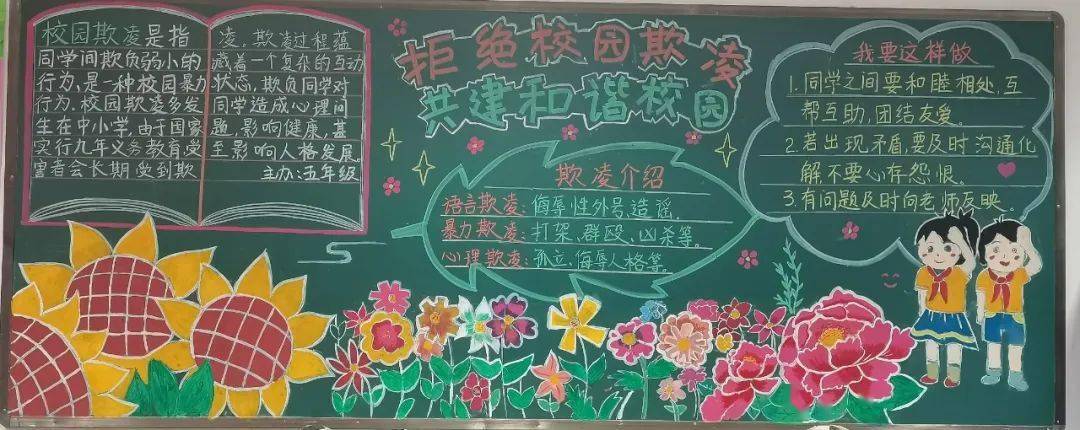 拒绝校园欺凌
共建和谐校园
校园欺凌是指
同学间欺负弱小的
行为,是一种校园暴力
行为.校园欺凌多发
生在中小学,由于国家
实行九年义务教育受
害者会长期受到欺
凌,欺凌过程蕴
藏着一个复杂的互动
状态,欺负同学对
同学造成心理问
题,影响健康,甚
至影响人格发展。
主办:五年级
欺凌介绍
语言欺凌:侮辱性外号,造谣。
暴力欺凌:打架、群殴、凶杀等。
心理欺凌:孤立、侮辱人格等。
我要这样做
1.同学之间要和睦相处,互
帮互助,团结友爱。
2.若出现矛盾,要及时沟通化
解不要心存怨恨。
3.有问题及时向老师反映。